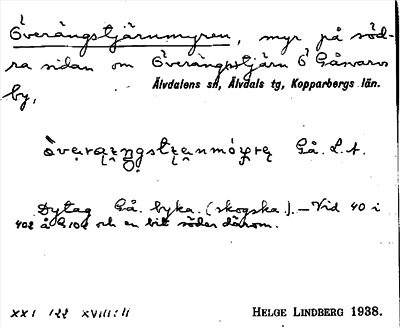 Överängstjärnmyren, myr på söd-
ra sidan om Överängstjärn Ö Gåsvarvs
Älvdalens sn, Älvdals tg, Kopparbergs län.
by,
Gå. L. A.
Dytag Gå. byka. (skogska.). – Vid 40 i
402 å G 102 och en bit söder därom.
XXI 122 XVIII:11 HELGE LINDBERG 1938.